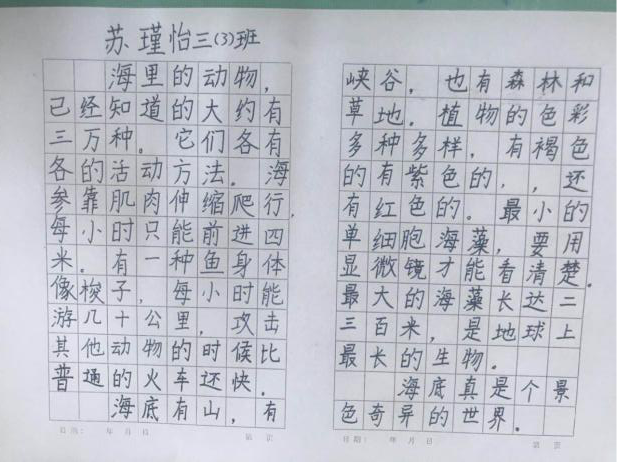 苏瑾怡三(3)班
海里的动物，
己经知道的大约有
三万种。它们各有
各的活动方法。海
参靠肌肉伸缩爬行，
每小时只能前进四
米。有一种鱼身体
像梭子，每小时能
游几十公里，攻击
其他动物的时候比
普通的火车还快。
海底有山，有
峡谷，也有森林和
草地。植物的色彩
多种多样，有褐色
的有紫色的，，还
有红色的。最小的
单细胞海藻，要用
显微镜才能看清楚。
最大的海藻长达二
三百米，是地球上
最长的生物。
海底真是个景
色奇异的世界。
年 月 日
第 页
日期： 年 月 日
第 页